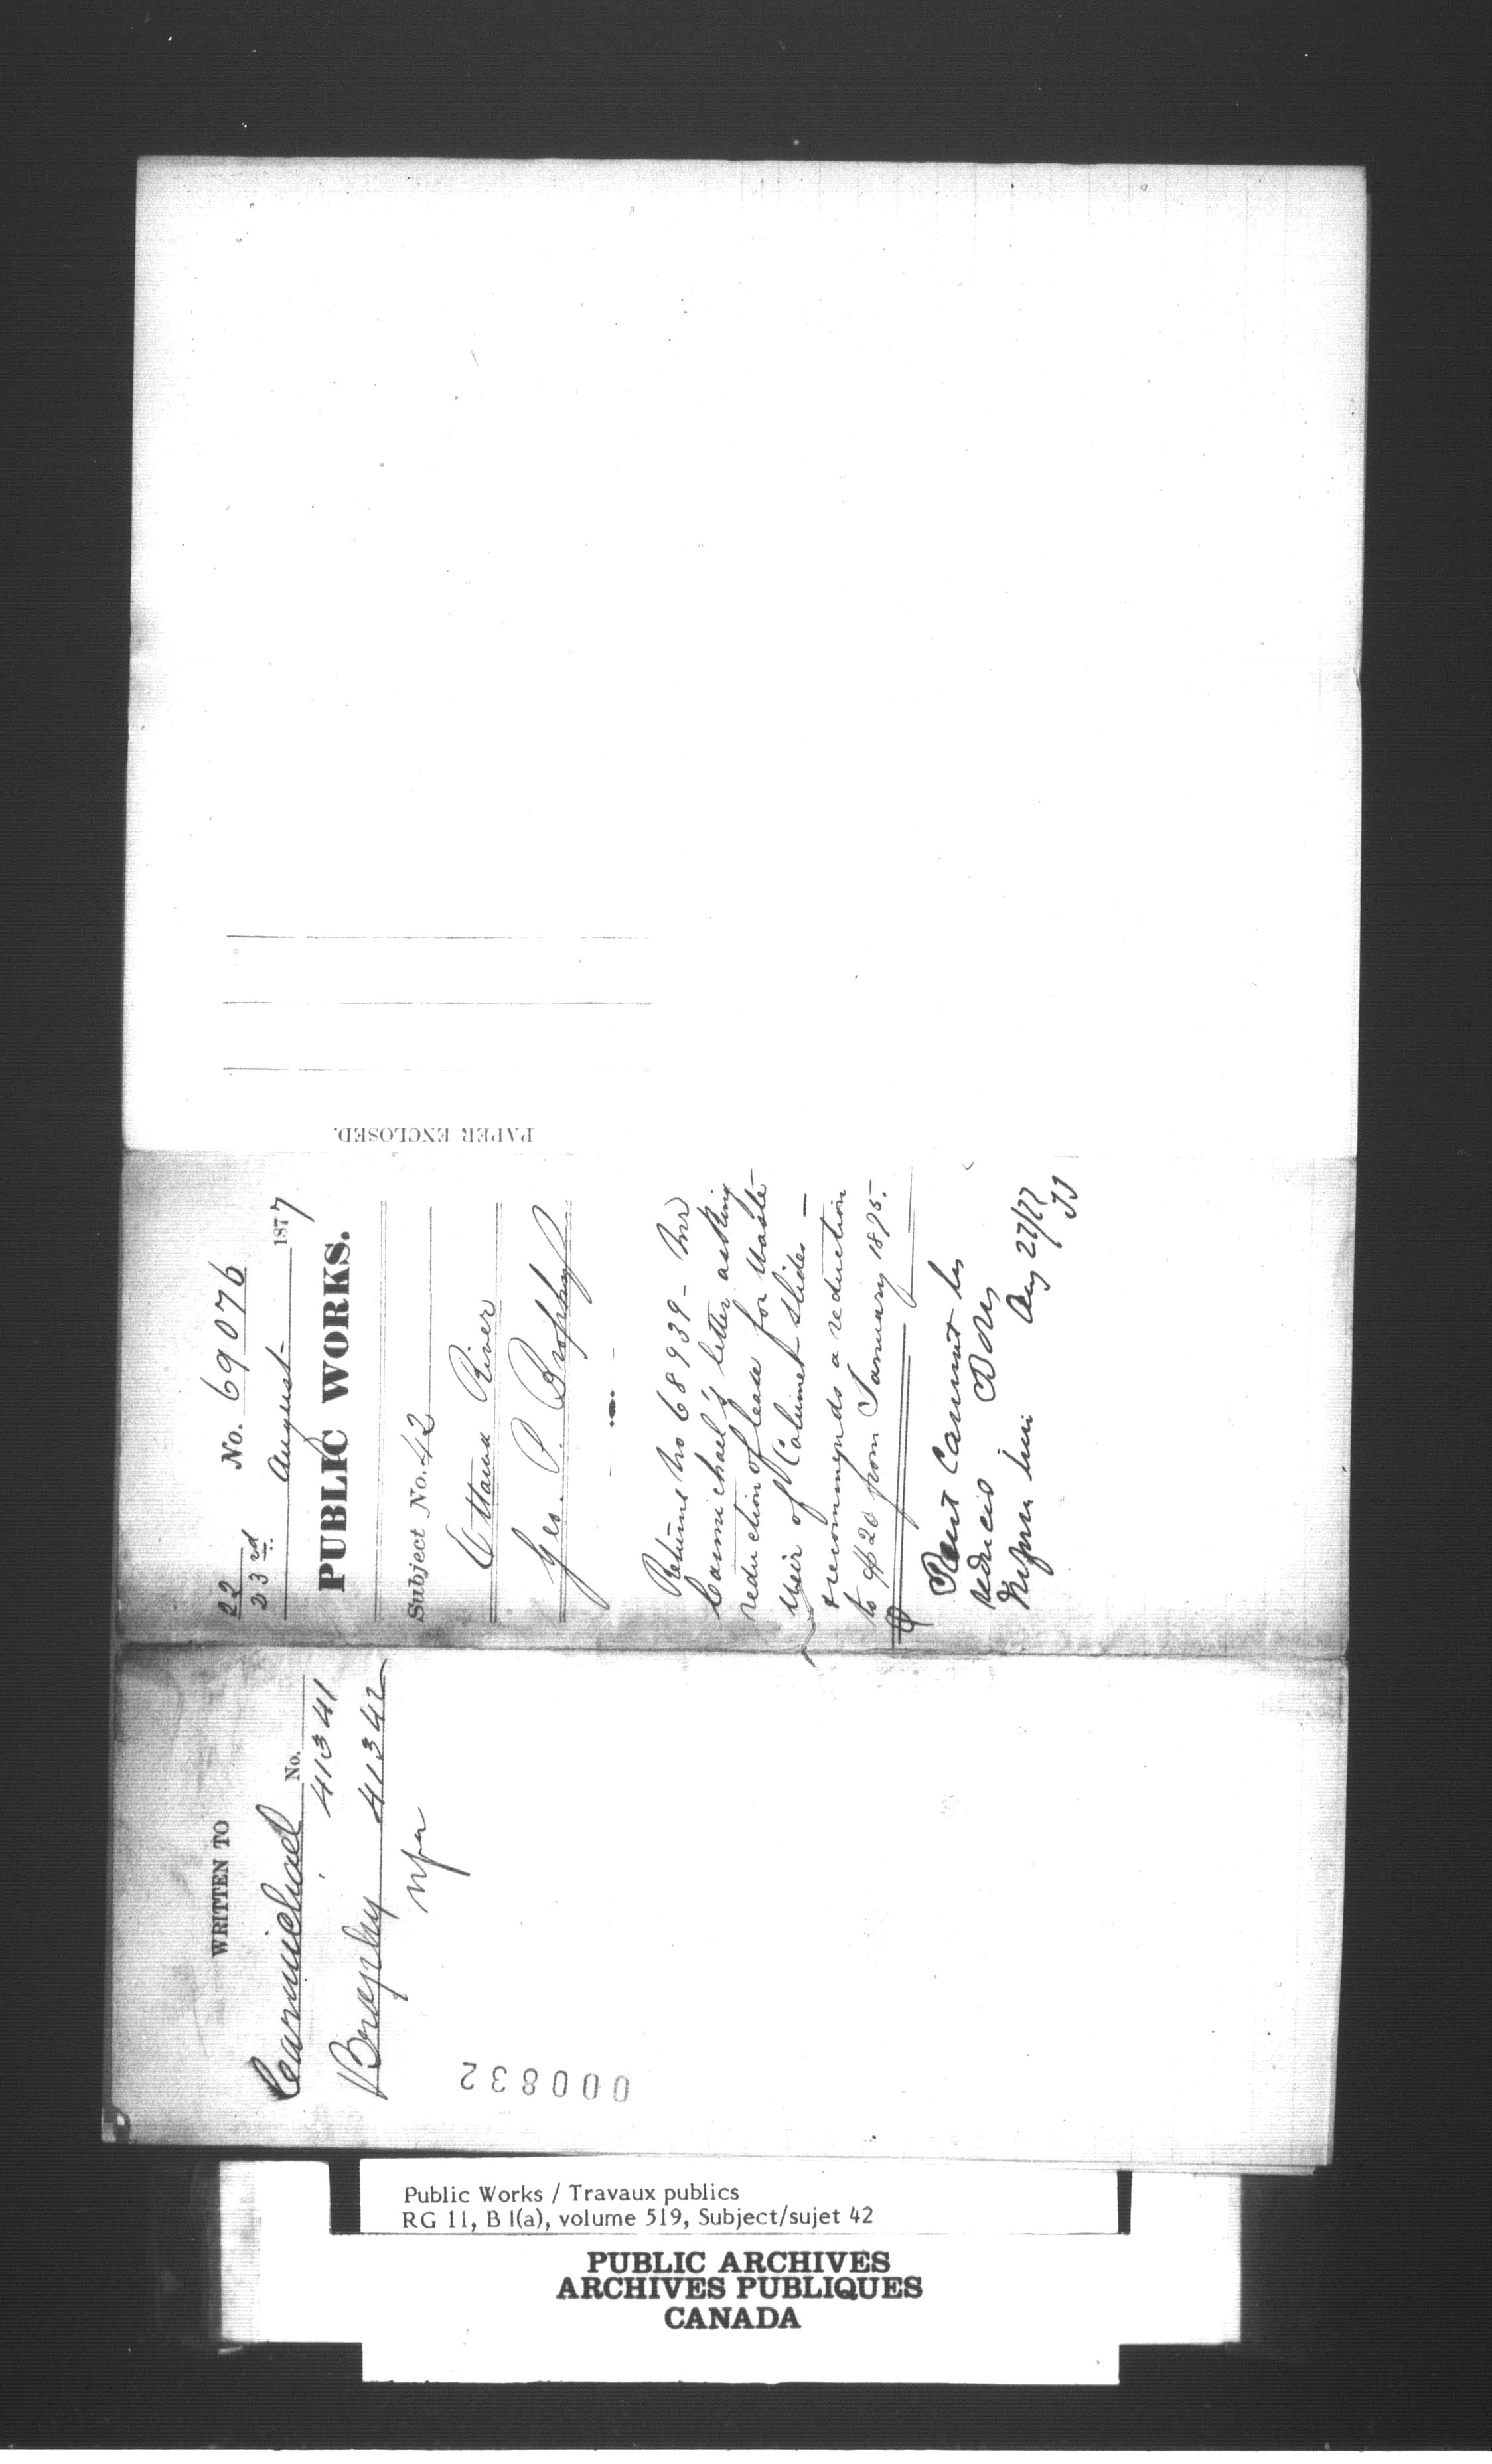 22
23rd
No. 69076
August 1877
PUBLIC WORKS.
Subject No. 42
Ottawa River
Geo. P. Brophy
Returns No 68939 - Mr
Carmichael's letter asking
reduction of lease for Waste
weir of Calumet slides —
& recommends a reduction
to $20 from January 1875.-
Rent Cannot be
reduced
Inform him Aug 27/77
PAPER ENCLOSED.
WRITTEN TO
No.
Carmichael 41341
Brophy 41342
000832
Public Works / Travaux publics
RG 11, B 1(a), volume 519, Subject/sujet 42
PUBLIC ARCHIVES
ARCHIVES PUBLIQUES
CANADA